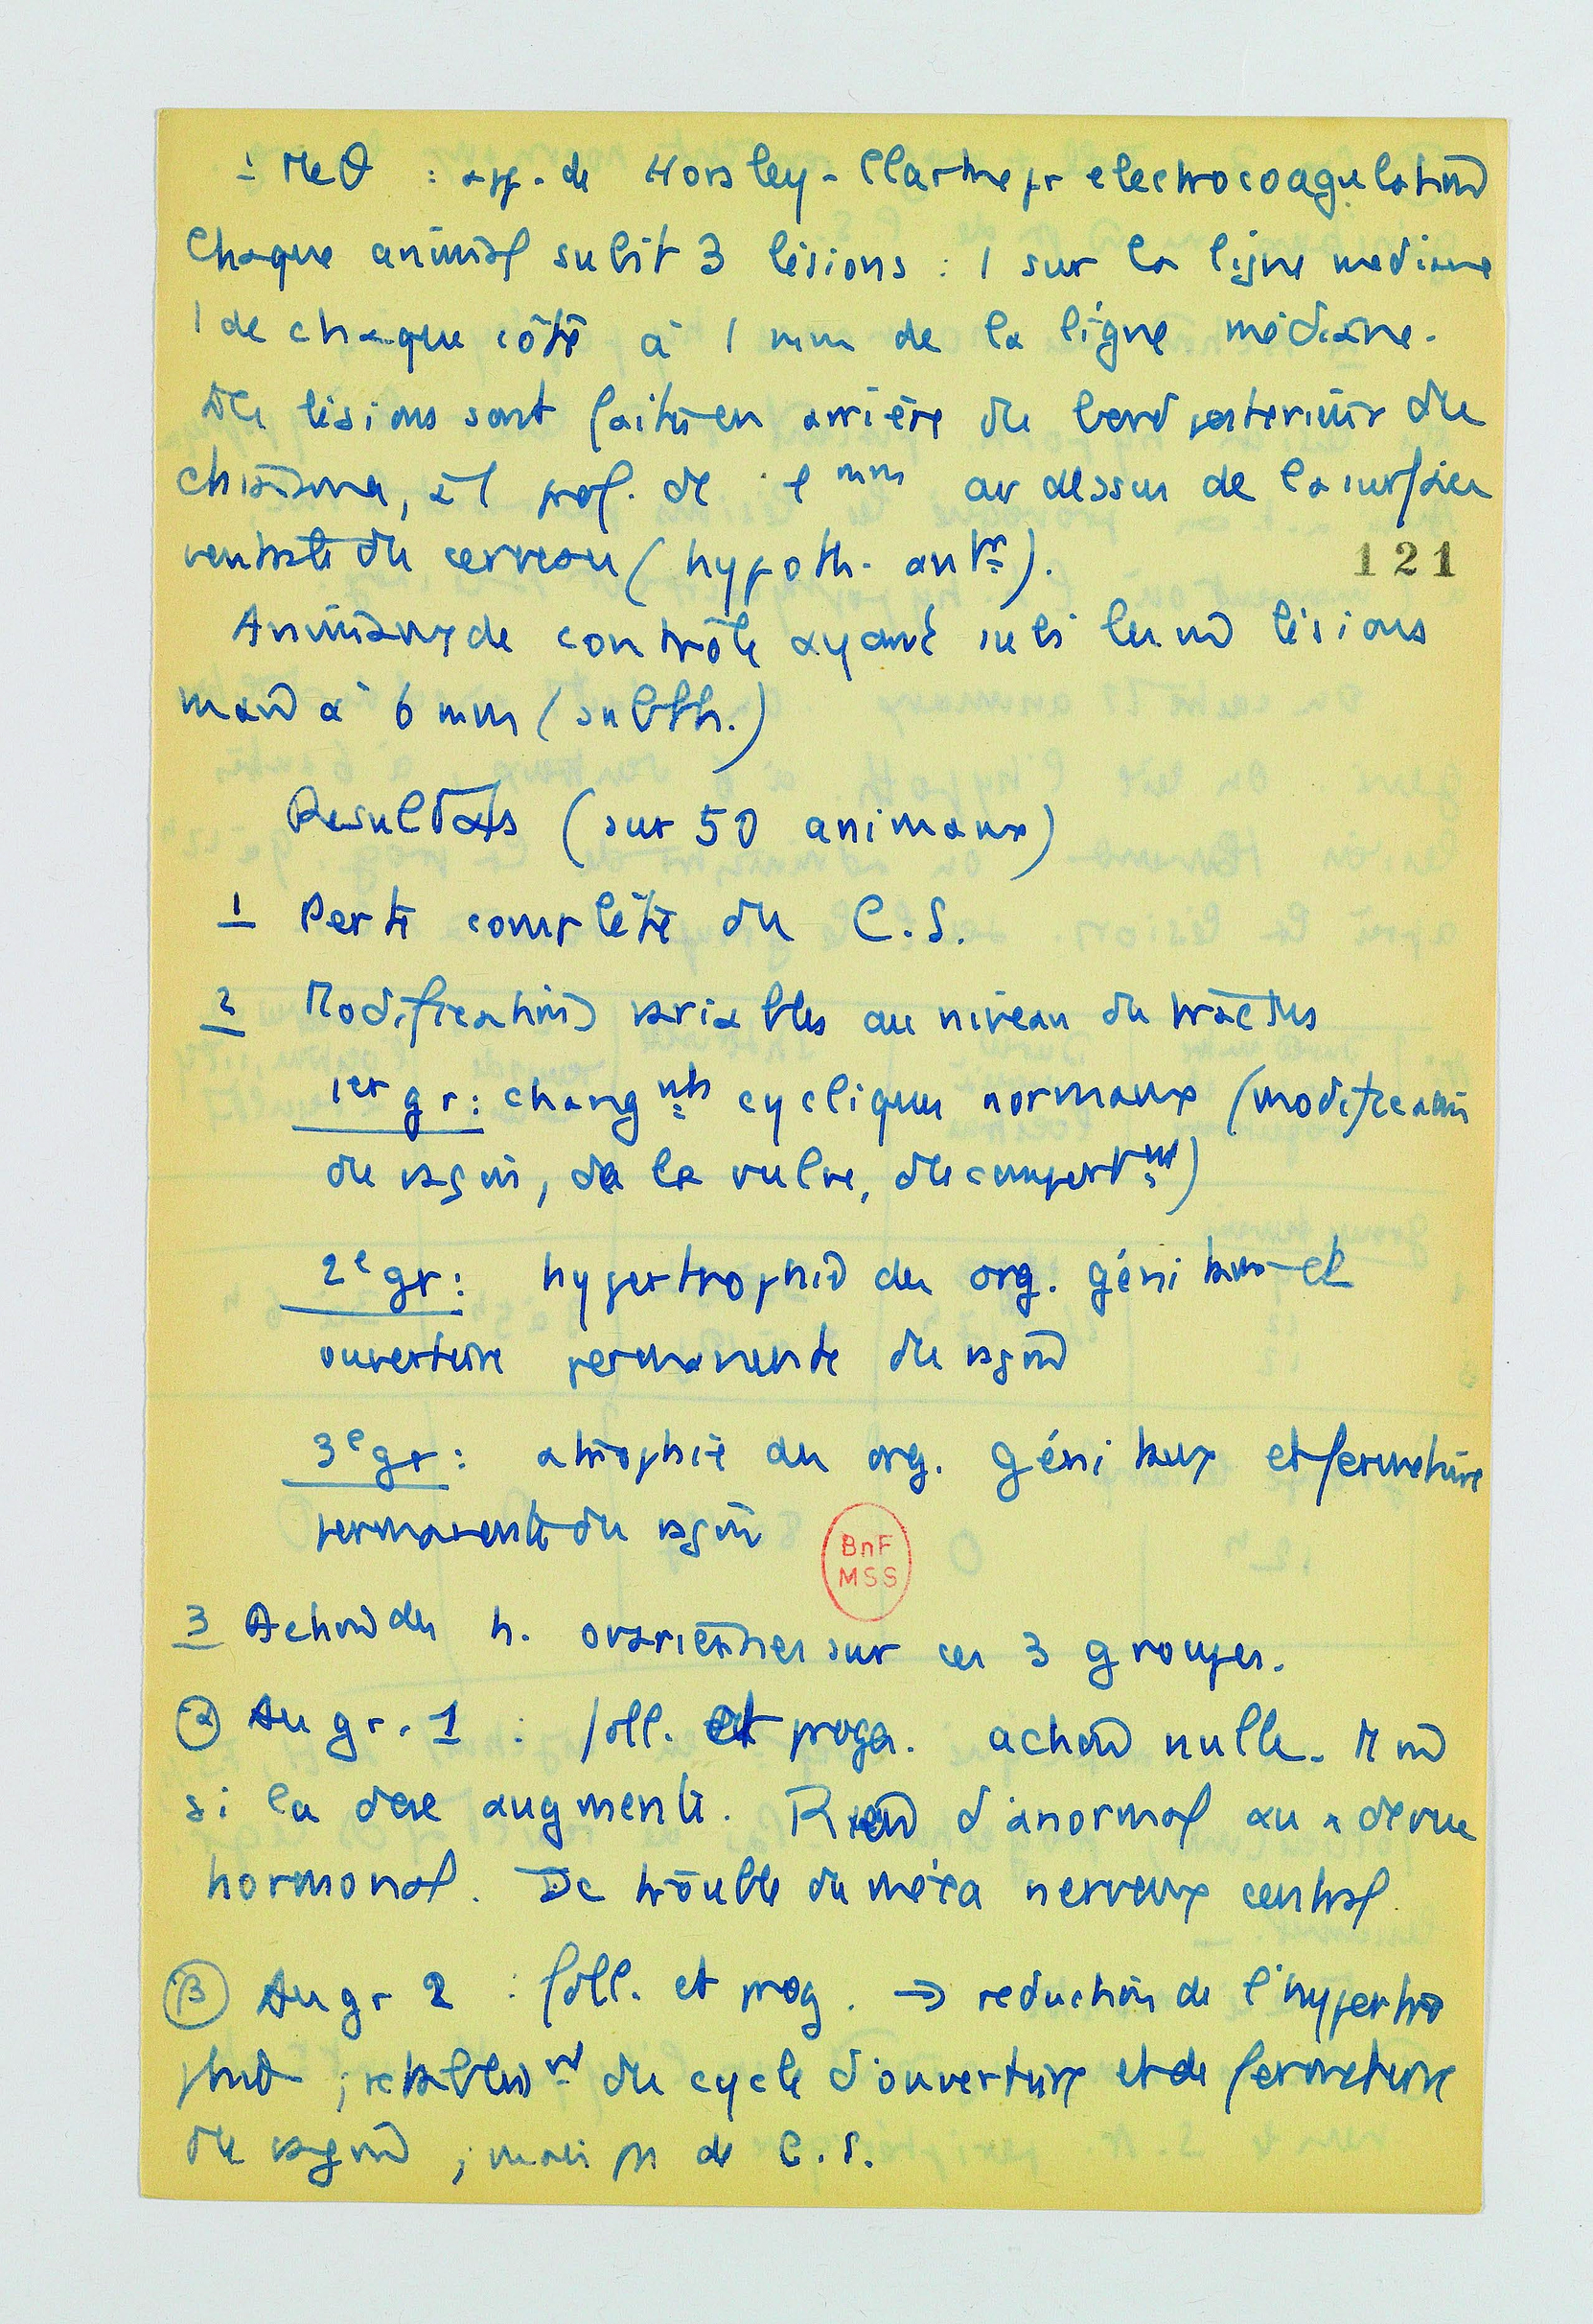 1 MeΘ : app. de Horsley-Clarke pr electrocoagulation
Chaque animal subit 3 lésions : 1 sur la ligne mediane
1 de chaque côté à 1 mm de la ligne médiane.
Les lésions sont faites en arrière du bord posterieur du
chiasma, et prof. de 1 mm au dessus de la surface
ventrale du cerveau (hypoth. antr).
121
Animaux de contrôle ayant subi les m lésions
mais à 6 mm (subth.)
Resultats (sur 50 animaux)
1 Perte complète du C.S.
2 Modifications variables au niveau du tractus
1er gr: changnts cycliques normaux (modification
du vagin, de la vulve, du comportnt)
2e gr: hypertrophie des org. génitaux et
ouverture permanente du vagin
3e gr: atrophie des org. génitaux et fermeture
permanente du vagin
BnF
MSS
3 Action des h. ovariennes sur ces 3 groupes.
α Au gr. 1 : foll. et proga. action nulle. M
si la dose augmente. Rien d'anormal au
hormonal. Dc trouble du méca nerveux central.
β Au gr 2 : foll. et prog. → reduction de l'hypertro
phie ; retablisnt du cycle d'ouverture et de fermeture
du vagin ; mais ps de C.S.